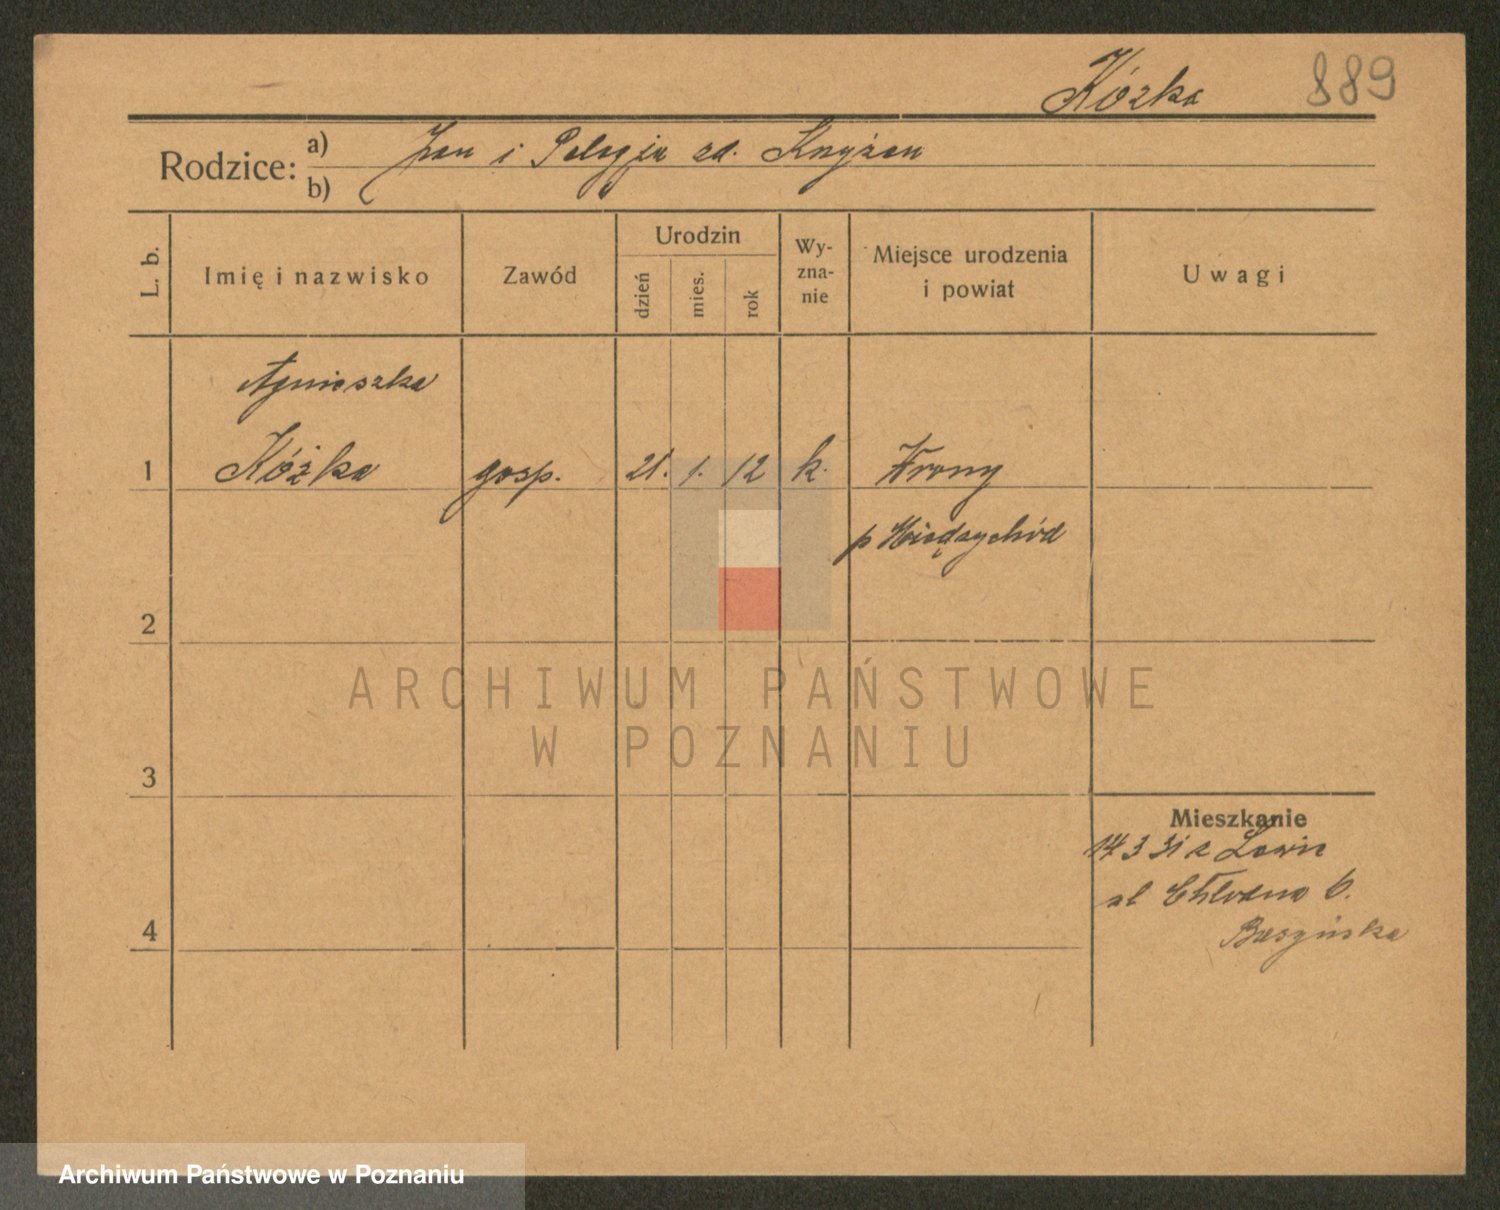 Kózka 889
Rodzice: a) Jan i Pelagja zd. Knyżen
b)
L. b.
Imię i nazwisko
Zawód
Urodzin
dzień
mies.
rok
Wy-
zna-
nie
Miejsce urodzenia
i powiat
Uwagi
Agnieszka
1 Kóżka gosp. 21. 1. 12 k. Wrony
p Międzychód
2
ARCHIWUM PAŃSTWOWE
W POZNANIU
3
Mieszkanie
14 3 31 z
ul Chłodna 6.
4
Archiwum Państwowe w Poznaniu